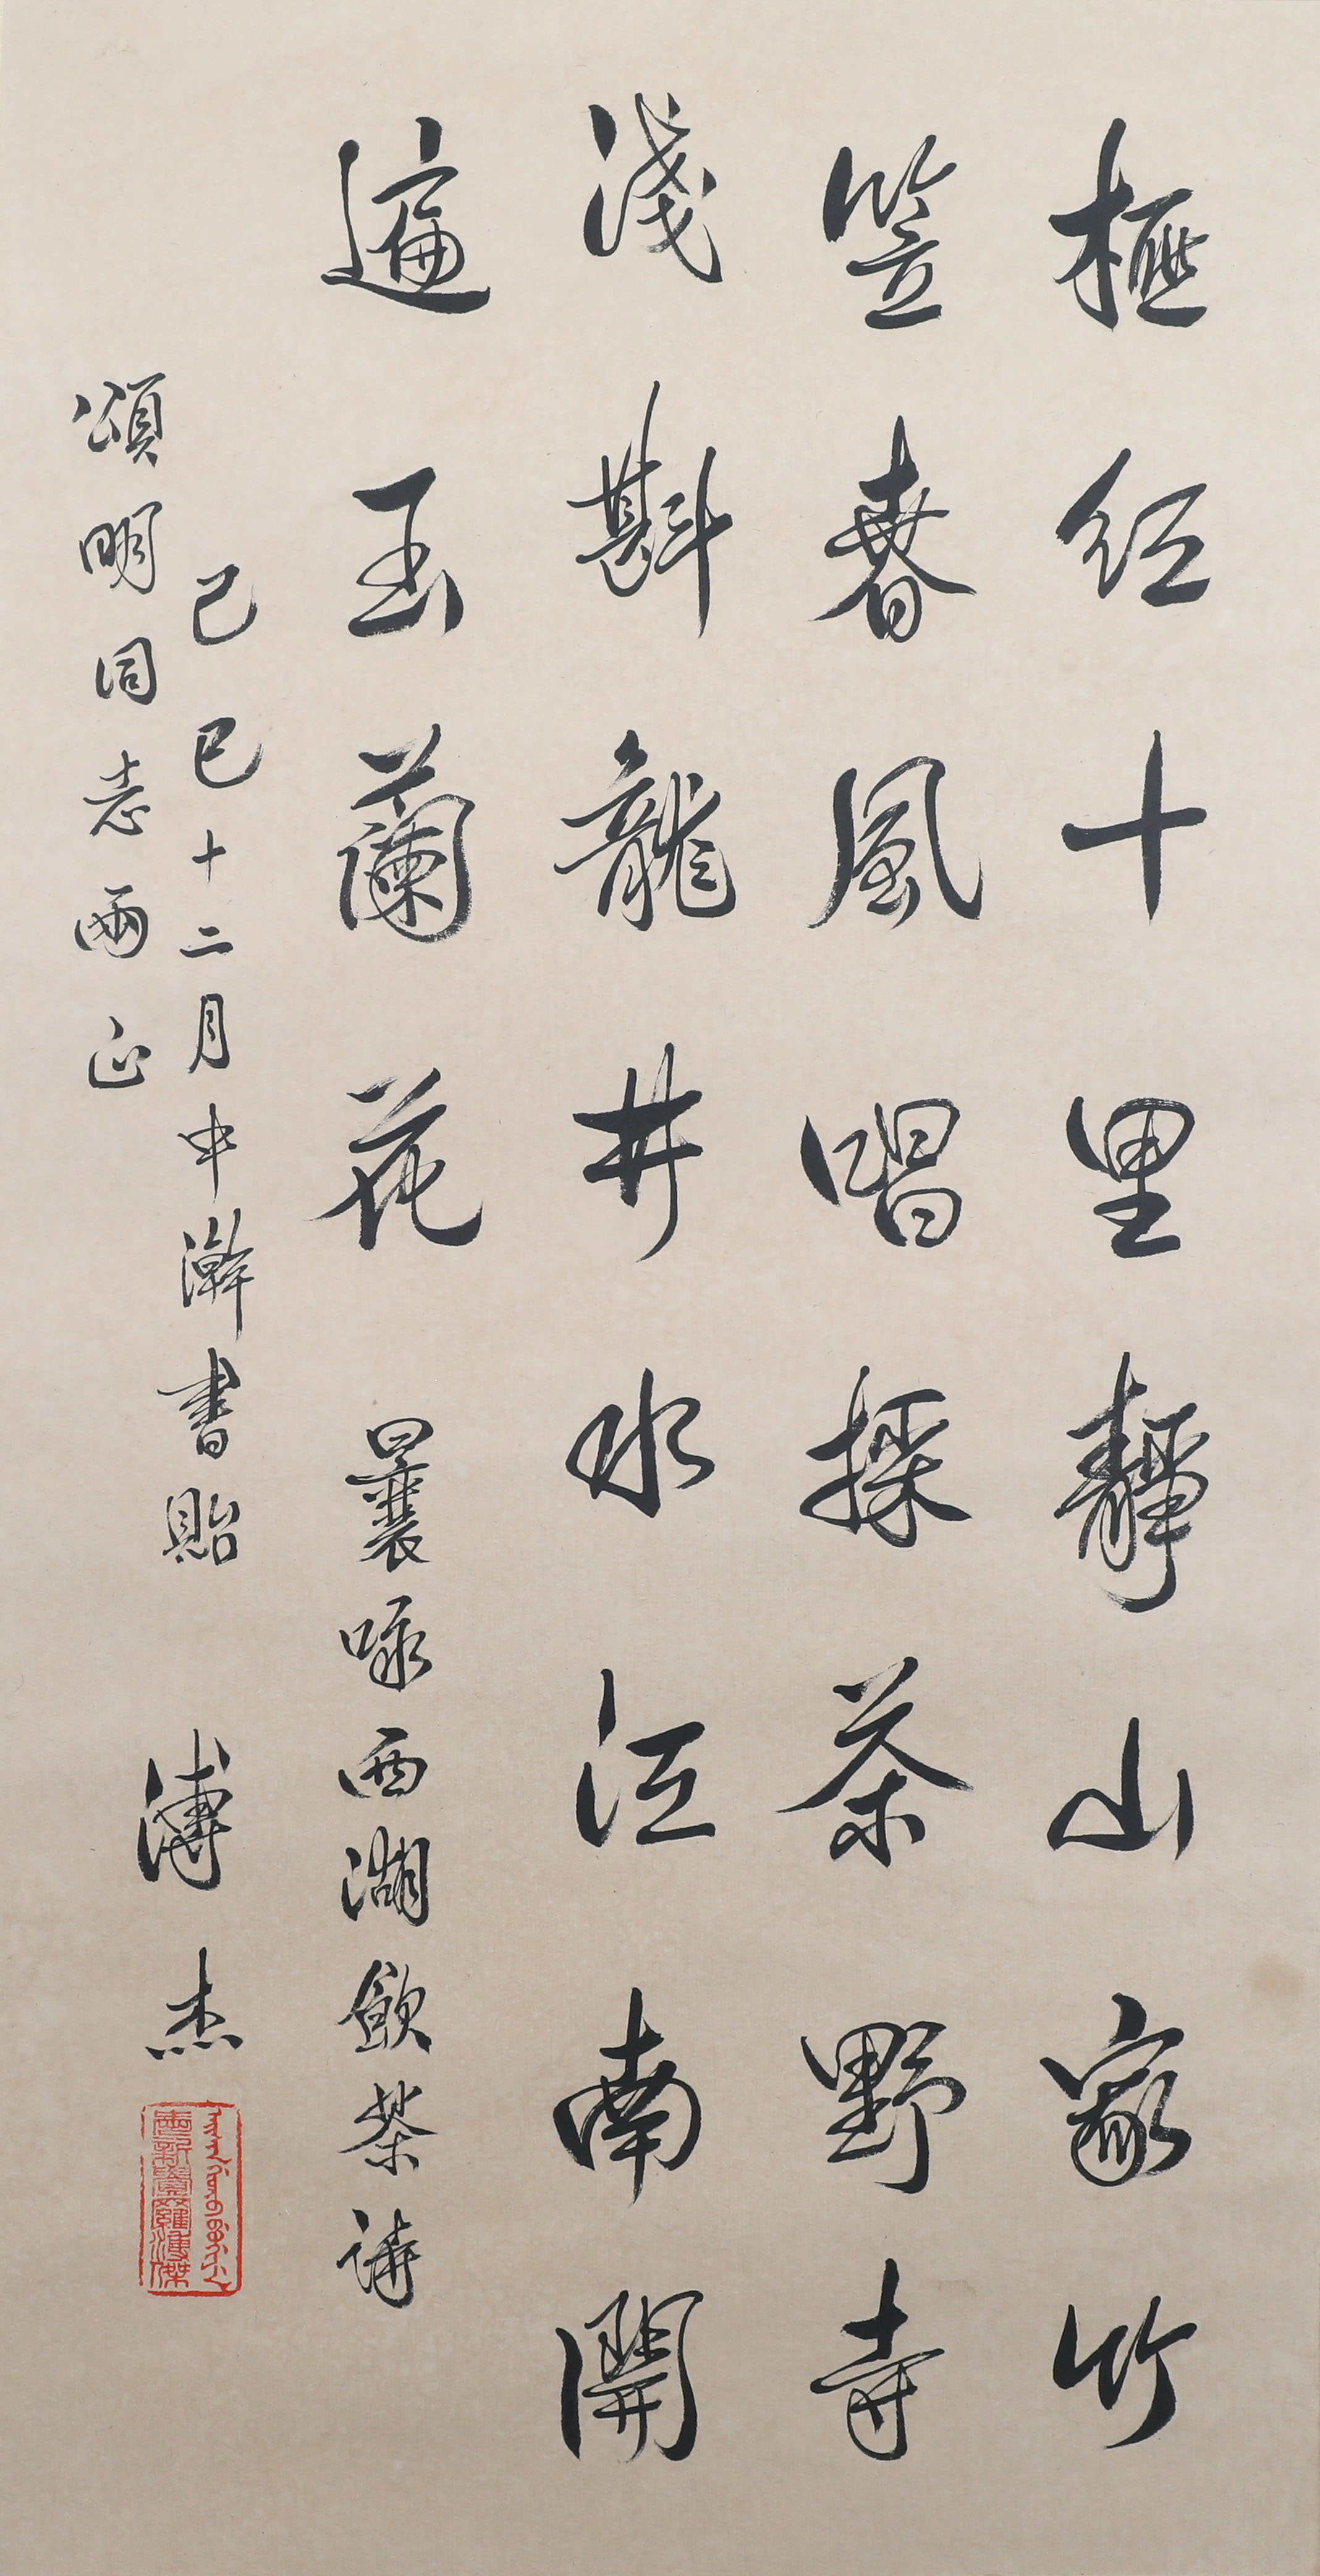 榧紅十里靜山家竹
笠春風唱採茶野寺
淺斟龍井水江南開
遍玉蘭花 曩咏西湖飲茶詩
己巳十二月中澣書貽
頌明同志兩正
溥杰
愛新覺羅溥傑